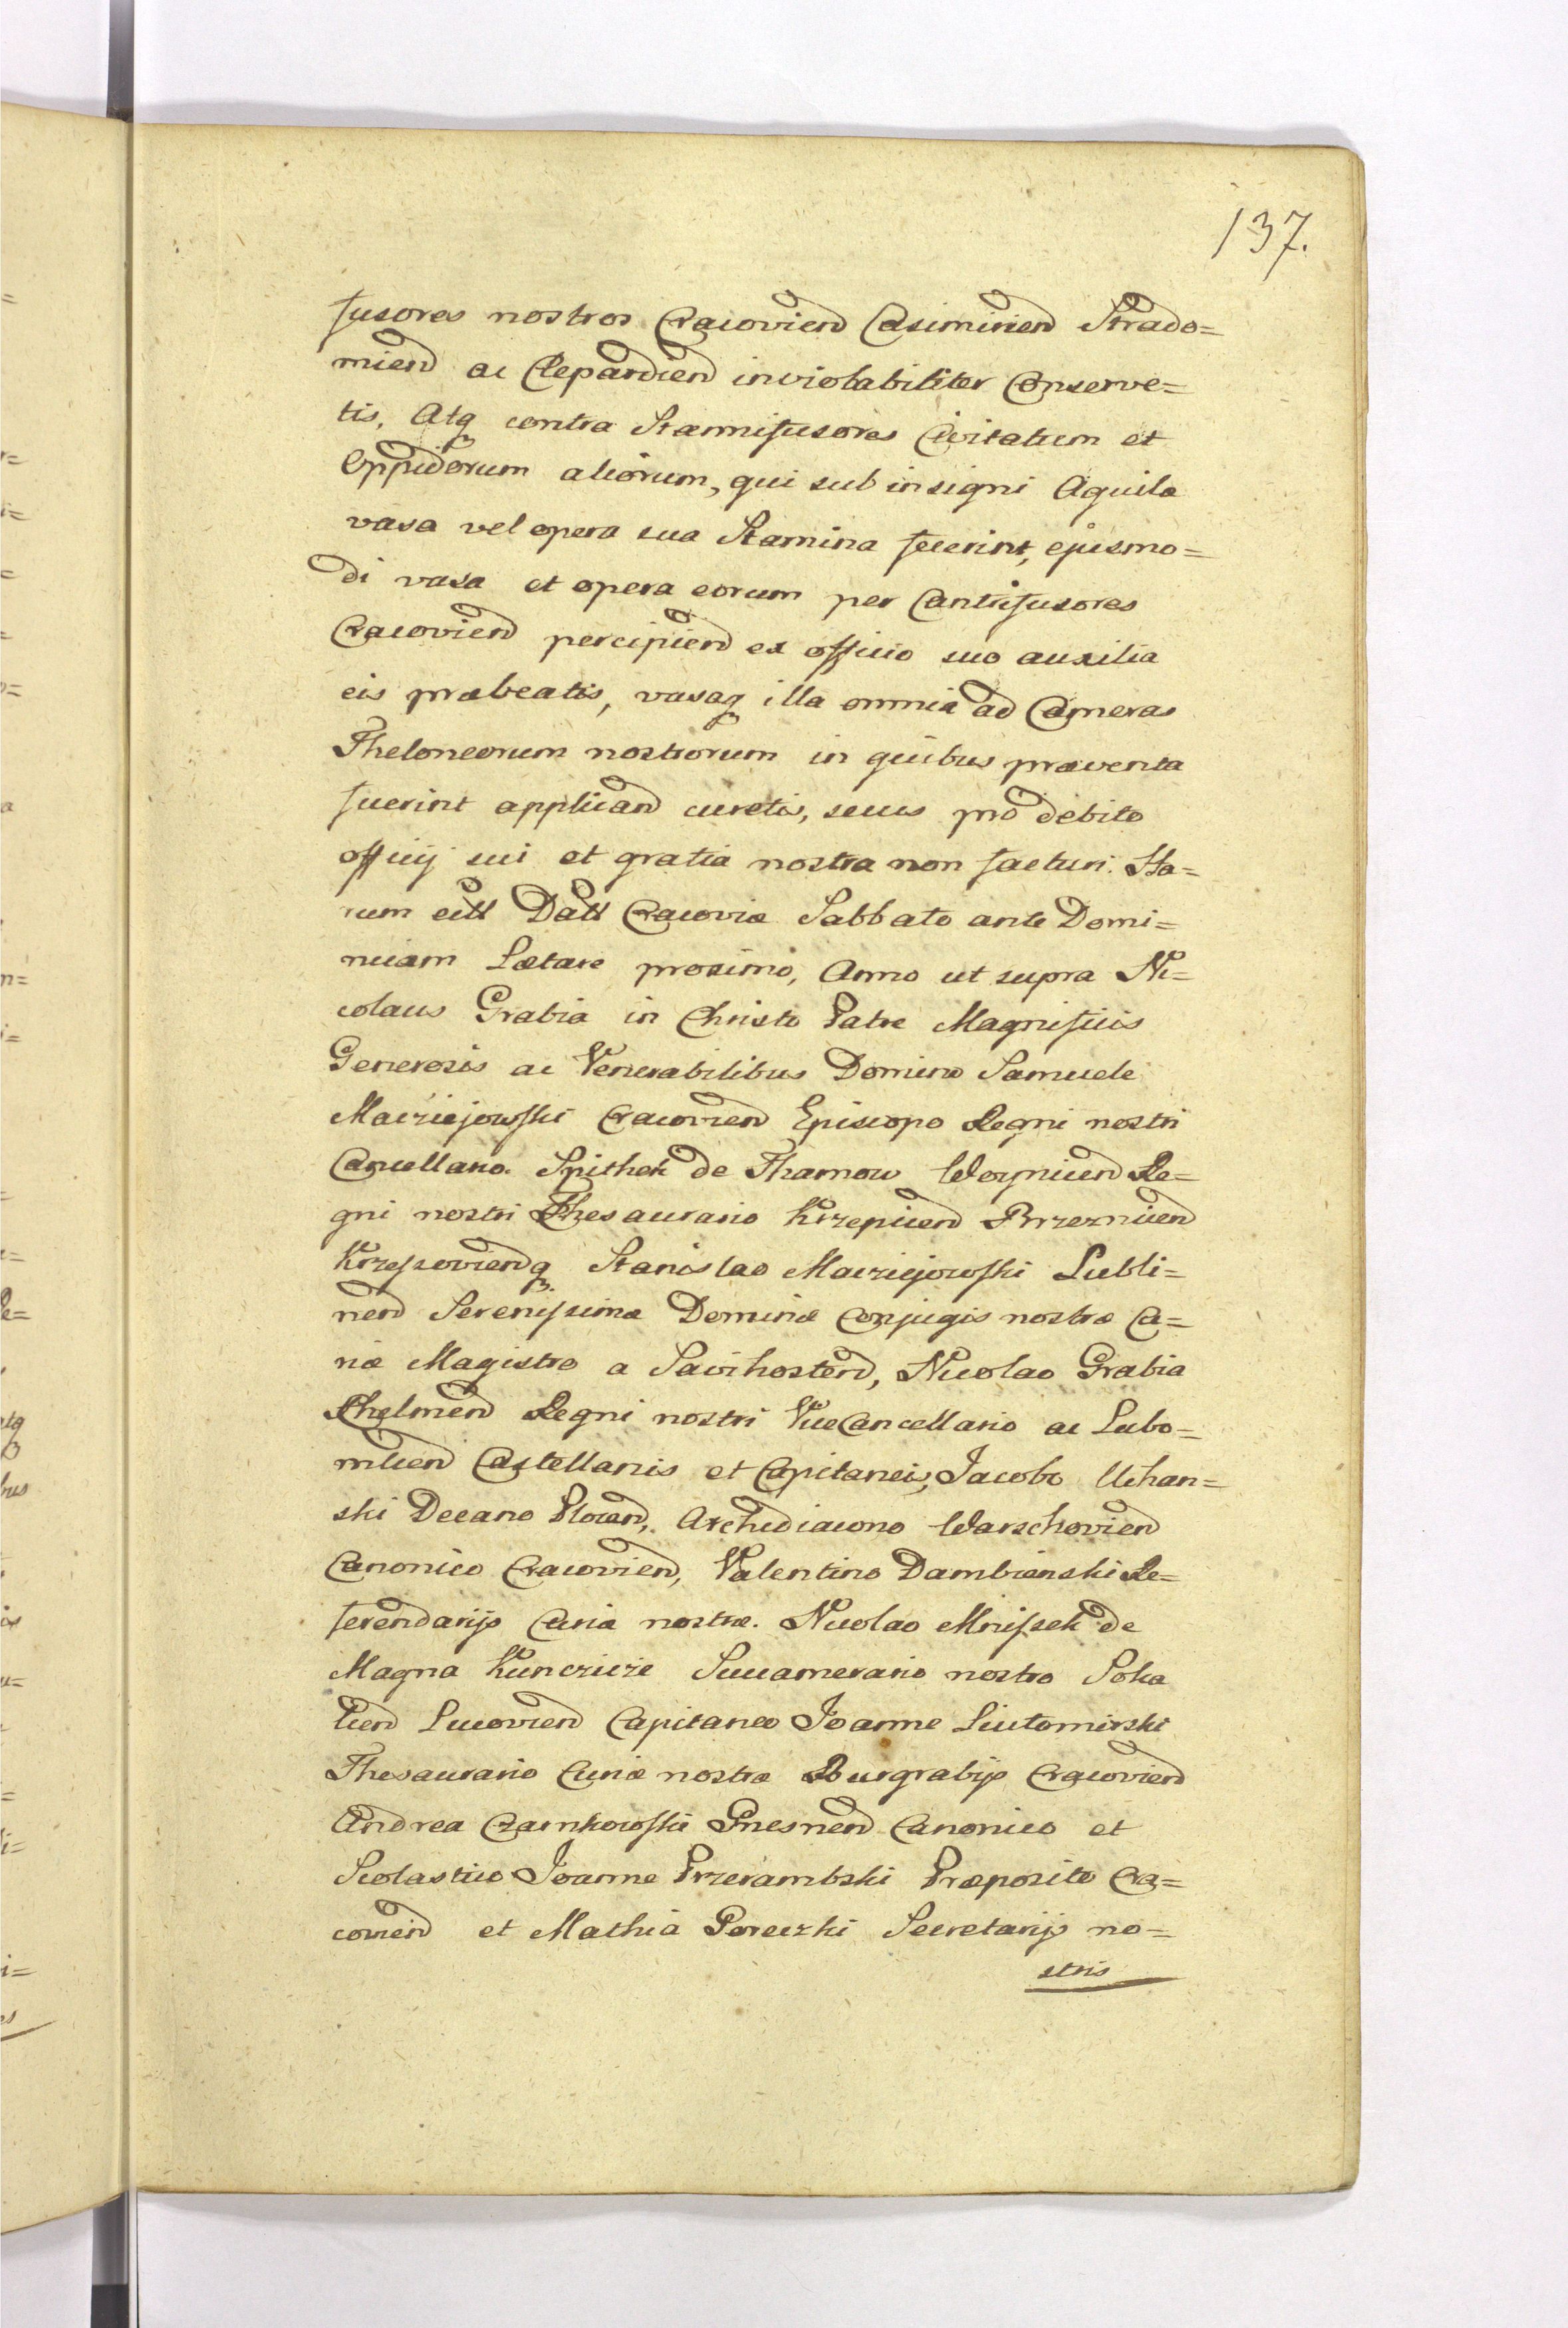 137.
fusores nostros Cracovien Casimirien Strado=
mien ac Clepardien inviolabiliter Conserve=
tis, Atq contra Stannifusores Civitatum et
Oppidorum aliorum, qui sub insigni Aquila
vasa vel opera sua Stamina fecerint, ejusmo=
di vasa et opera eorum per Cantrifusores
Cracovien percipien ex officio suo auxilia
eis præbeatis, vasaq illa omnia ad Cameras
Theloneorum nostrorum in quibus præventa
fuerint applicand curetis, secus pro debito
officij sui et gratia nostra non facturi. Ha=
rum ettt Dattt Cracoviæ Sabbato ante Domi=
nicam Lætare proximo, Anno ut supra Ni=
colaus Grabia in Christo Patre Magnificis
Generosis ac Venerabilibus Domino Samuele
Macziejowski Cracovien Episcopo Regni nostri
Cancellario. Spithek de Tharnow Woynicen Re=
gni nostri Thesaurario Krzepicen Brzeznicen
Krzeszovienq Stanislao Macziejowski Lubli=
nen Serenissimæ Dominæ Conjugis nostræ Cu=
riæ Magistro a Savihosten, Nicolao Grabia
Chelmen Regni nostri ViceCancellario ac Lubo=
mlien Castellanis et Capitaneis, Jacobo Uchan=
ski Decano Plocen, Archidiacono Warschovien
Canonico Cracovien, Valentino Dambienski Re=
ferendarijs Curiæ nostræ. Nicolao Mniszek de
Magna Kunczicze Succamerario nostro Soka
lien Lucovien Capitaneo Joanne Liutomirski
Thesaurario Curiæ nostræ Burgrabijs Cracovien
Andrea Czarnkowski Gnesnen Canonico et
Scolastico Joanne Przerambski Præposito Cra=
covien et Mathia Poreczki Secretarijs no=
stris